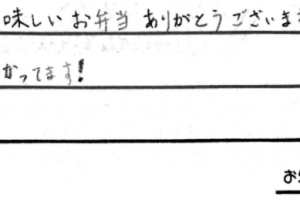 味しいお弁当ありがとうございま
かってます!
お